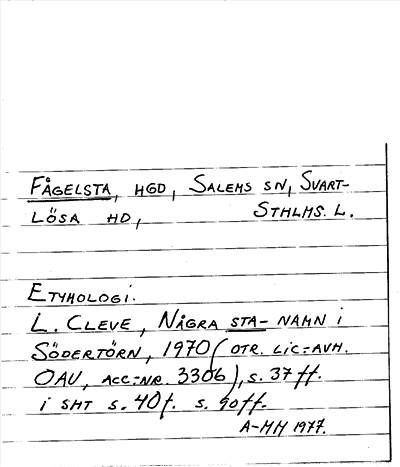 FÅGELSTA, HGD, SALEMS SN, SVART-
LÖSA HD, STHLMS. L.
ETYMOLOGI.
L. CLEVE, NÅGRA STA- NAMN i
SÖDERTÖRN, 1970 (OTR. LIC.-AVH.
OAU, ACC.-NR. 3306), s. 37 ff.
i SHT s. 40 f. s. 90 ff.
A-MH 1977.